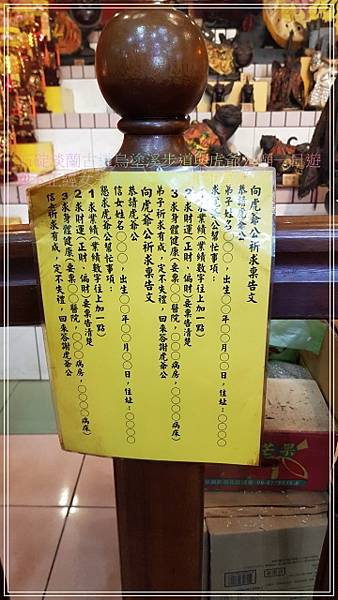 向虎爺公祈求稟告文
恭請虎爺公
弟子姓名○○○，出生○○年○○月○○日，住址：○○○○
求虎爺公幫忙事項：
1求業績(業績數字往上加一點)
2求財運(正財、偏財)要稟告清楚
3求身體健康(要稟○○醫院，○○○○病房，○○○○病床)
弟子所求有成，一定不失禮，回來答謝虎爺公
向虎爺公祈求稟告文
恭請虎爺公
信女姓名○○○，出生○○年○○月○○日，住址：○○○○
懇求虎爺公幫忙事項：
1求業績(業績數字往上加一點)
2求財運(正財、偏財)要稟告清楚
3求身體健康(要稟○○醫院，○○○○病房，○○○○病床)
信女所求有成，一定不失禮，回來答謝虎爺公
芒果